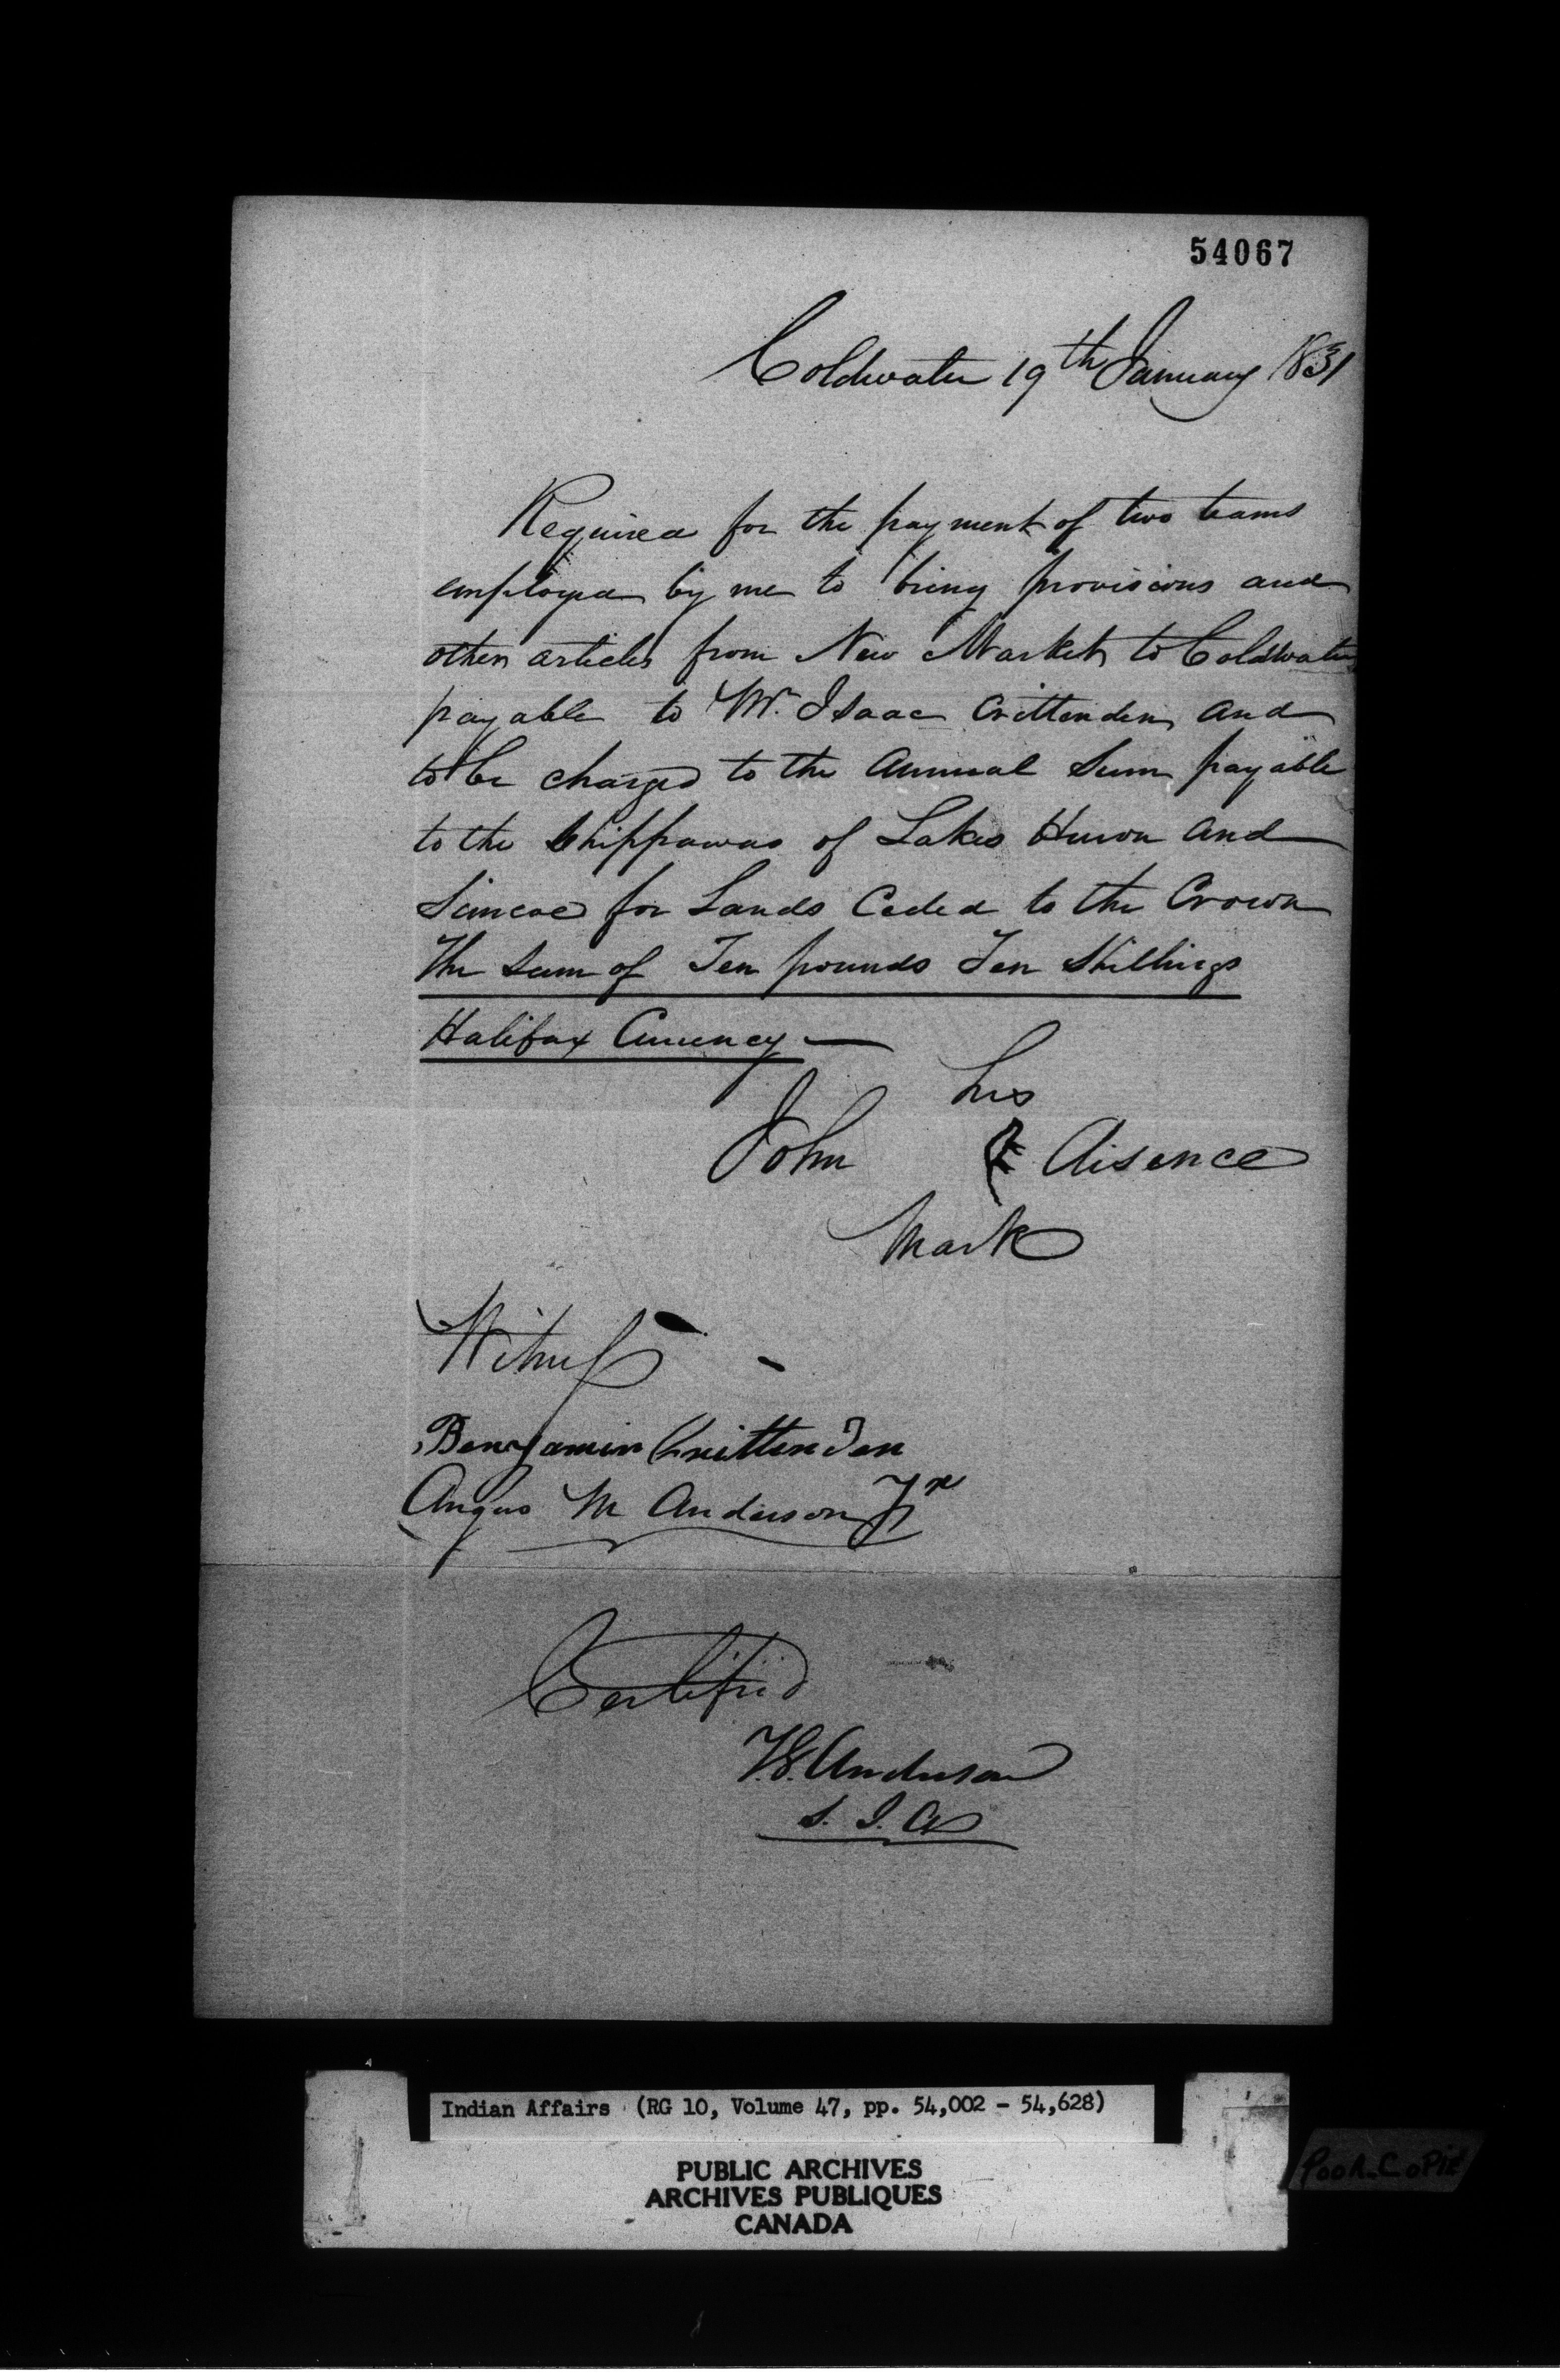 54067
Coldwater 19th January 1831
Required for the payment of two teams
employed by me to bring provisions and
other articles from New Market to Coldwater
payable to Mr. Isaac Crittenden and
to be charged to the Annual Sum payable
to the Chippawas of Lakes Huron and
Simcoe for Lands Ceded to the Crown
The Sum of Ten pounds Ten Shillings
Halifax Currency —
his
John Aisence
Mark
Witness
Benjamin Crittenden
Angus M Anderson Jr
Certified
T.G. Anderson
S. I. A
Indian Affairs (RG 10, Volume 47, pp. 54,002 - 54,628)
PUBLIC ARCHIVES
ARCHIVES PUBLIQUES
CANADA
POOR COPIE